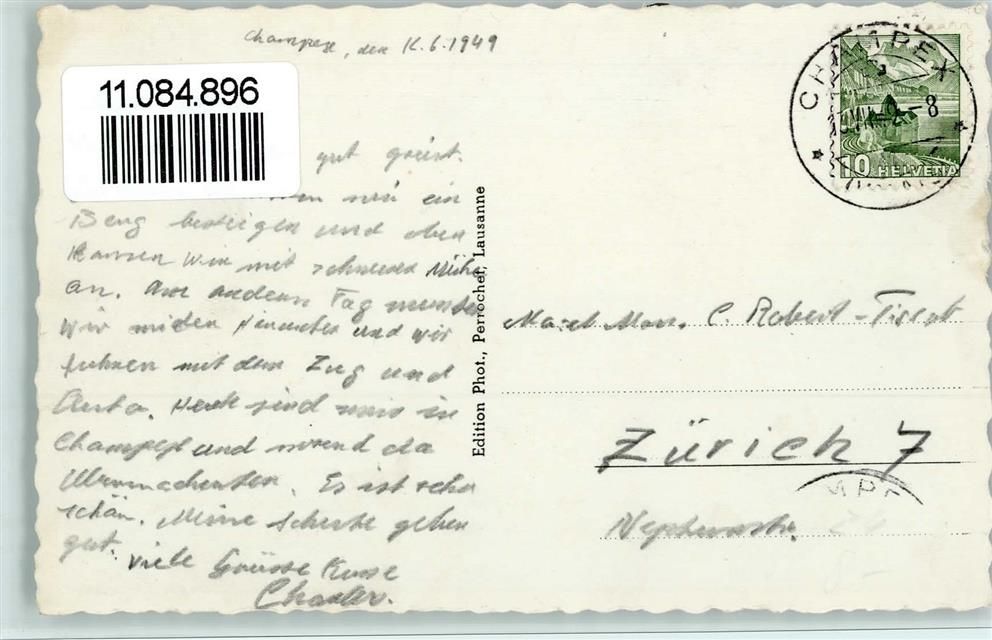 Champex, den 12.6.1949
11.084.896
gut gereist.
wir ein
Berg besteigen und oben
kamen wir mit schwerer Mühe
an. Am andern Tag mussten
wir wieder hinunter und wir
fuhren mit dem Zug und
Auto. Heute sind wir in
Champex und werend da
übernachten. Es ist sehr
schön. Meine Schuhe gehen
gut. Viele Grüsse Küsse
Charles.
Edition Phot., Perrochet, Lausanne
CHAMPEX
-8
10 HELVETIA
C. Robert-Tissot
Zürich 7
MPE
Neptunstr.